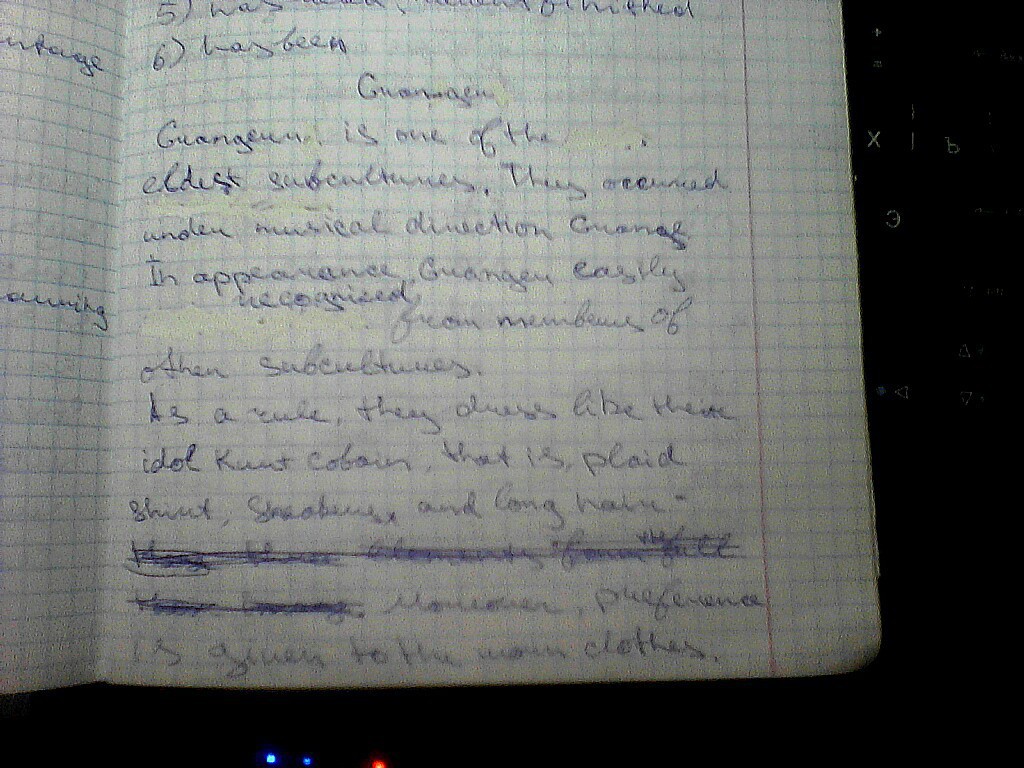 5) has finished
6) has been
Grunger
Grunger is one of the
eldest subcultures. They occurred
under musical direction Grunge
In appearance, Grunger easily
recognized
from members of
other subcultures.
As a rule, they dress like their
idol Kurt Cobain, that is, plaid
shirt, sneakers, and long hair.
Moreover, preference
is given to the worn clothes.
Х Ъ
Э